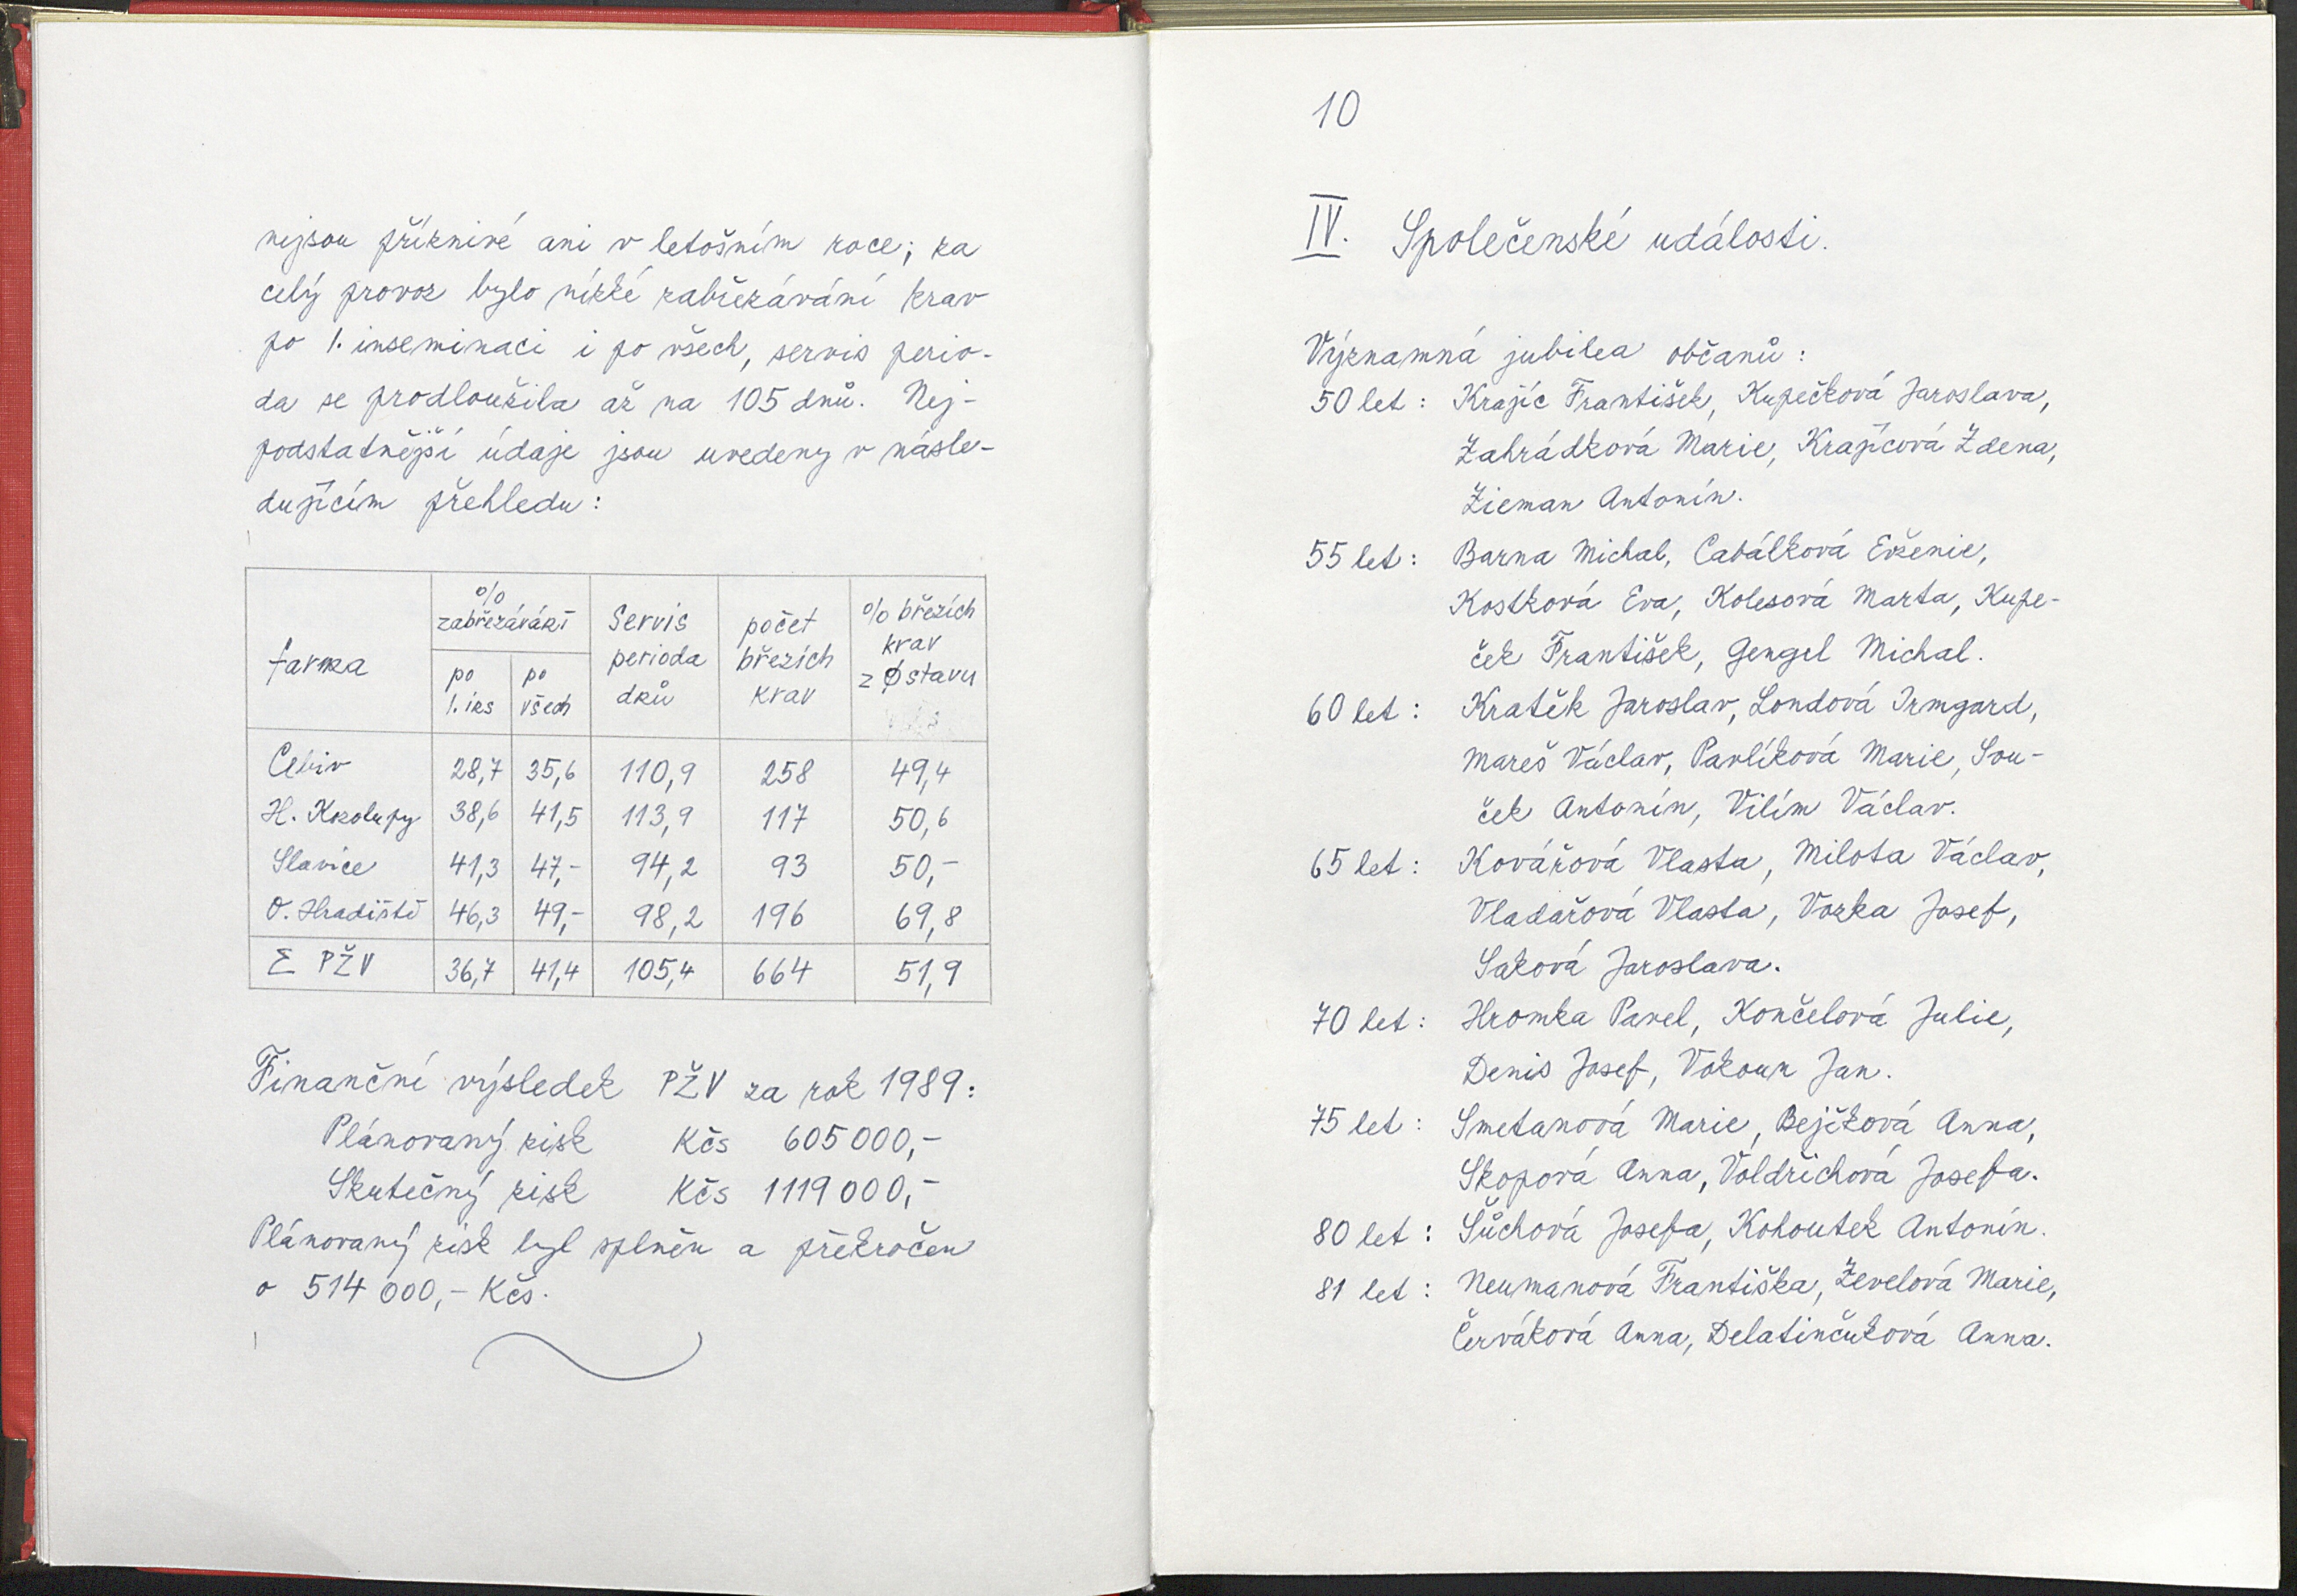 nejsou příznivé ani v letošním roce; za
celý provoz bylo nízké zabřezávání krav
po 1. inseminaci i po všech, servis perio-
da se prodloužila až na 105 dnů. Nej-
podstatnější údaje jsou uvedeny v násle-
dujícím přehledu:
farma | % zabřezávání | Servis perioda dnů | počet březích krav | % březích krav z Ø stavu
po 1. ins | po všech
Cebiv 28,7 35,6 110,9 258 49,4
H. Kozolupy 38,6 41,5 113,9 117 50,6
Slavice 41,3 47,- 94,2 93 50,-
O. Hradiště 46,3 49,- 98,2 196 69,8
Σ PŽV 36,7 41,4 105,4 664 51,9
Finanční výsledek PŽV za rok 1989:
Plánovaný zisk Kčs 605 000,-
Skutečný zisk Kčs 1119 000,-
Plánovaný zisk byl splněn a překročen
o 514 000,- Kčs.
10
IV. Společenské události.
Významná jubilea občanů:
50 let: Krajíc František, Kupečková Jaroslava,
Zahrádková Marie, Krajícová Zdena,
Zieman Antonín.
55 let: Barna Michal, Cabálková Evženie,
Kostková Eva, Kolesová Marta, Kupe-
ček František, Gengel Michal.
60 let: Kratěk Jaroslav, Londová Irmgard,
Mareš Václav, Pavlíková Marie, Sou-
ček Antonín, Vilím Václav.
65 let: Kovářová Vlasta, Milota Václav,
Vladařová Vlasta, Vozka Josef,
Saková Jaroslava.
70 let: Hromka Pavel, Končelová Julie,
Denis Josef, Vokoun Jan.
75 let: Smetanová Marie, Bejčková Anna,
Skopová Anna, Voldřichová Josefa.
80 let: Šůchová Josefa, Kohoutek Antonín.
81 let: Neumanová Františka, Ževelová Marie,
Červáková Anna, Delatinčuková Anna.